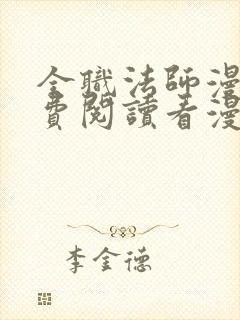 全職法師漫
費閱讀看漫
李金德